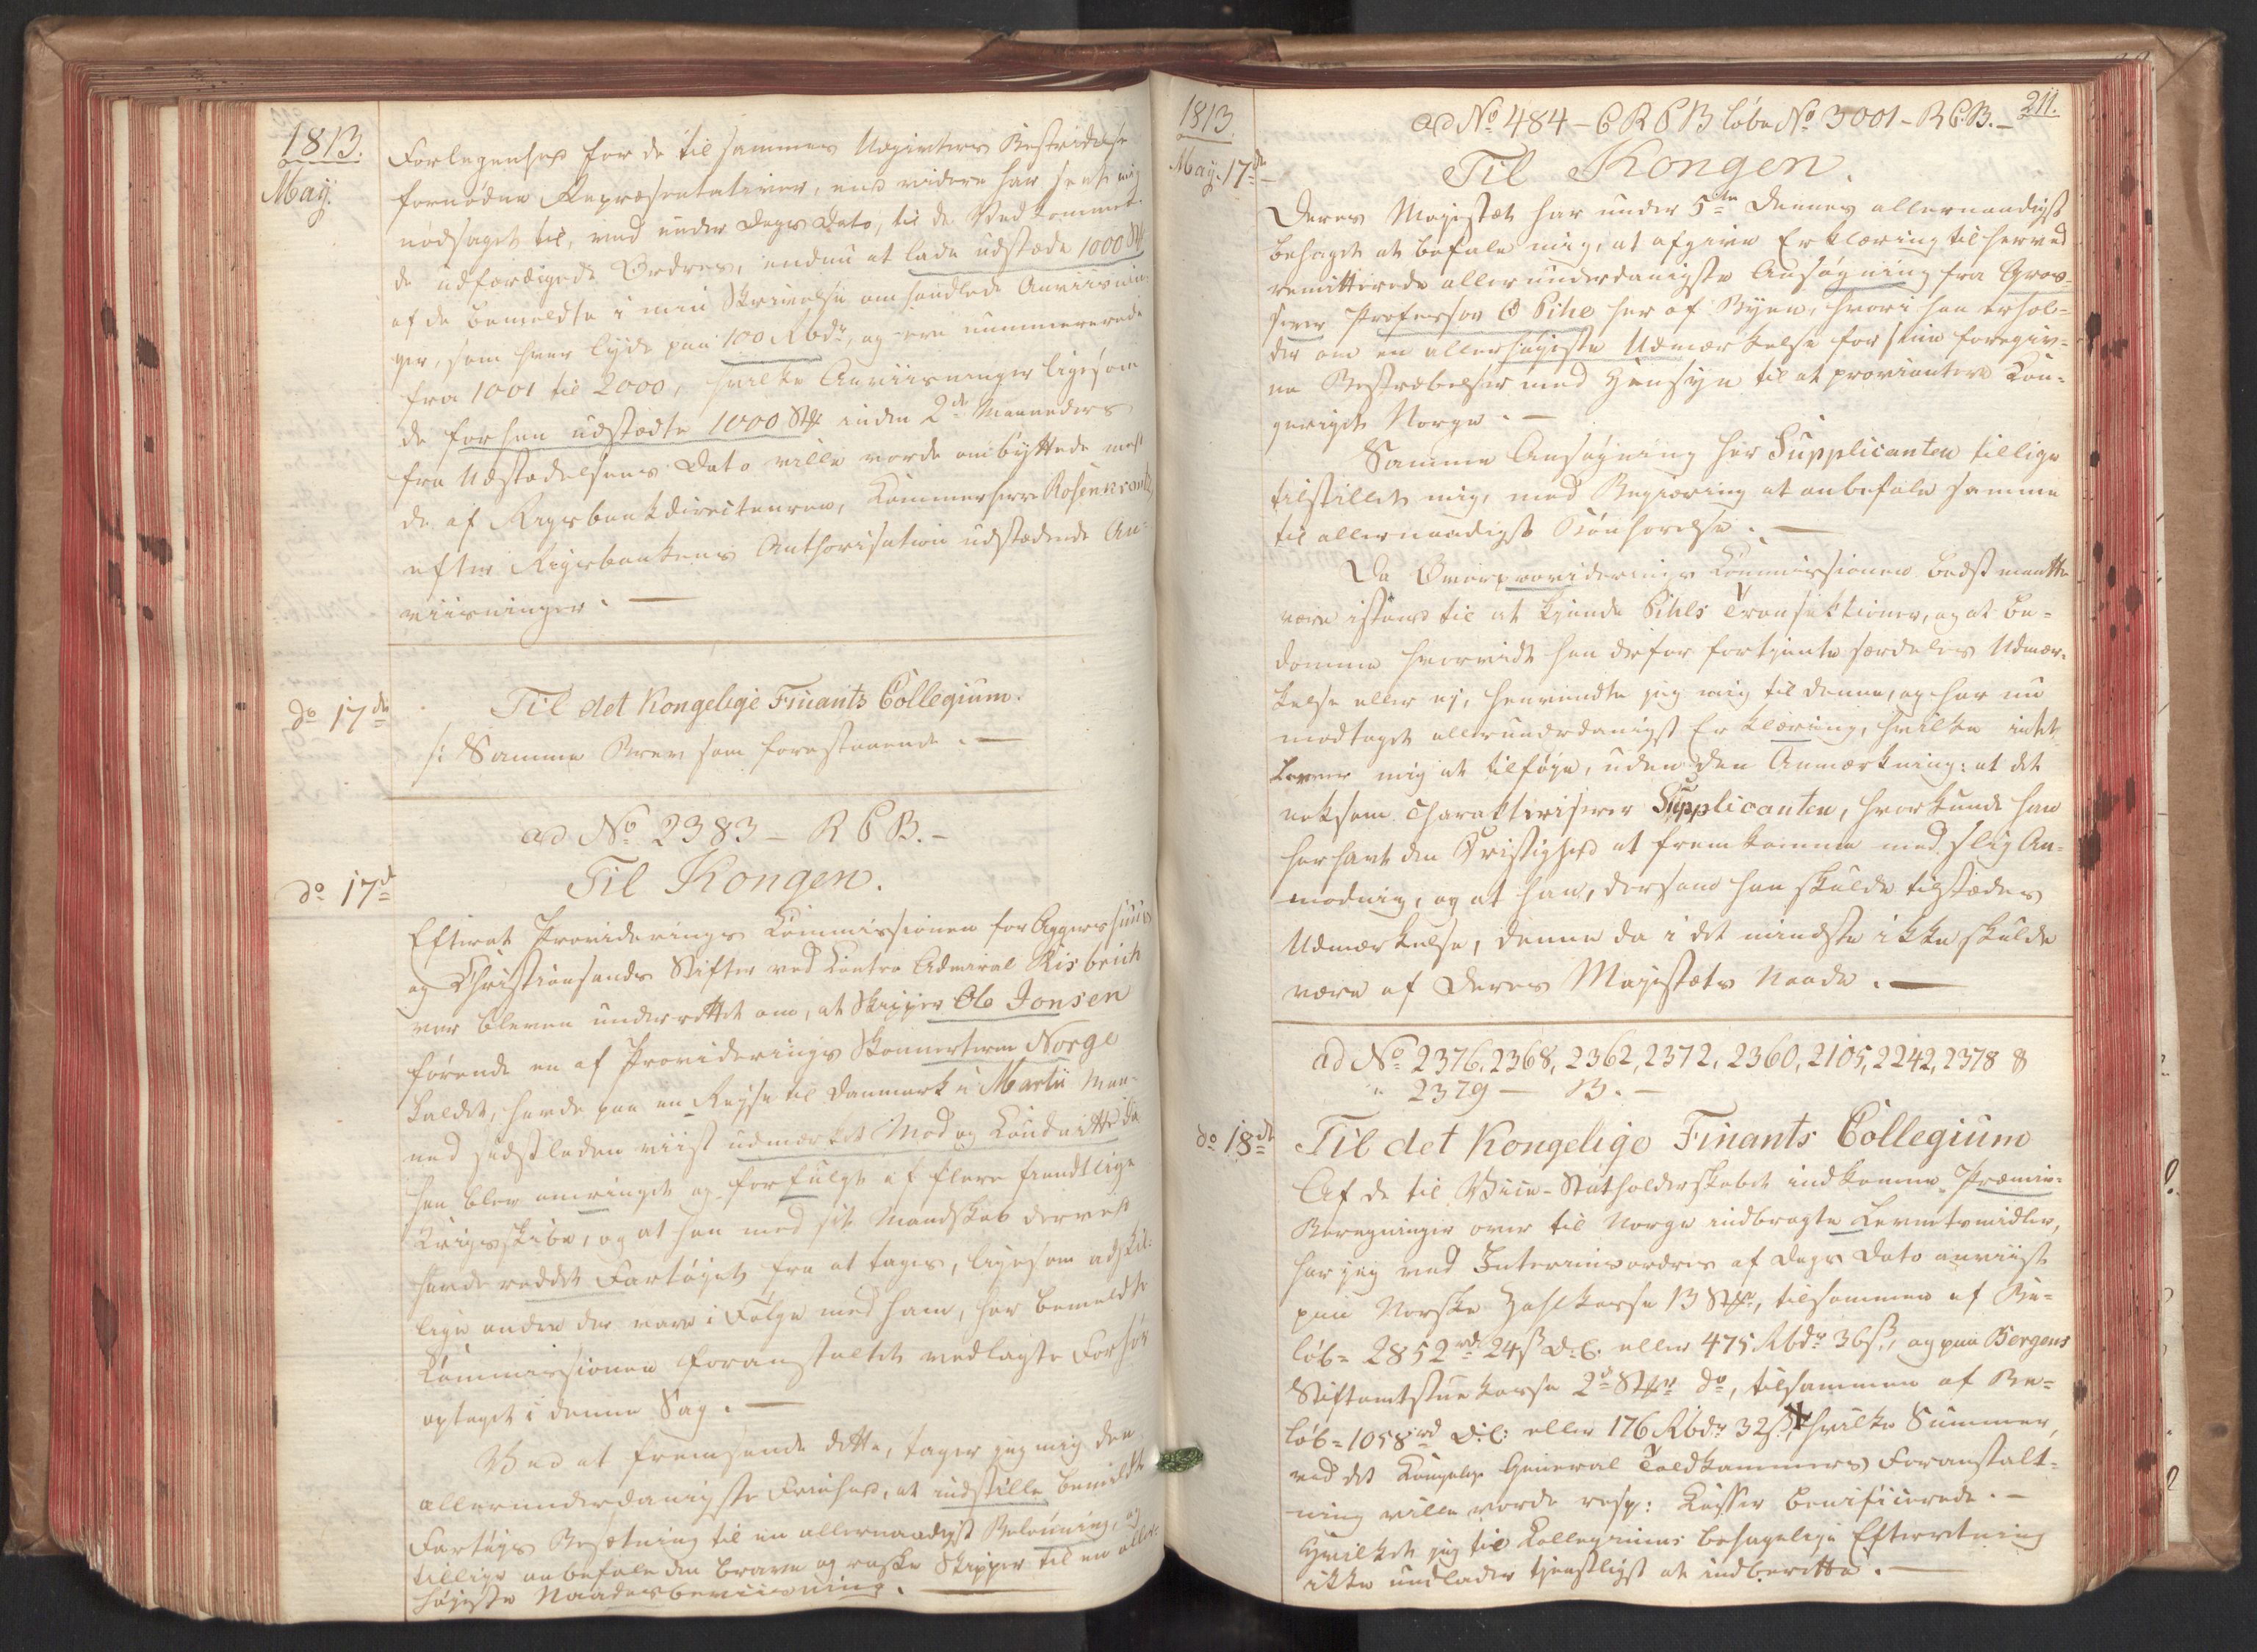 1813.
May.
Forlegenhed for de til sammes Udgivters Bestridelse
fornødne Repræsentativer, end videre har seet mig
nødsaget til, ved under Dags Dato, til de Vedkommen-
de udfærdigede Ordres, endnu at lade udstæde 1000 St
af de bemeldte i min Skrivelse omhandlede Anviisnin-
ger, som hver lyde paa 100 Rbdr, og ere nummererede
fra 1001 til 2000, hvilke Anviisninger ligesom
de forhen udstædte 1000 Stk inden 2de Maaneders
fra Udstædelsens Dato ville vorde ombyttede med
de af Rigsbankdirecteuren, Kammerherre Rosenkrantz
efter Rigsbankens Authorisation udstædende An-
viisninger. —
do 17de
Til det Kongelige Finants Collegium.
/: Samme Brev som forestaaende. —
ad No 2383 — R C B. —
do 17de
Til Kongen.
Efterat Provideringskommissionen for Aggershuus
og Christiansands Stifter ved Contra Admiral Risbrich
var bleven underrettet om, at Skipper Ole Jonsen
førende en af Providerings Skonnerterne Norge
kaldet, havde paa en Reyse til Danmark i Martii Maa-
ned sidstleden viist udmærket Mod og Conduitte da
han blev omringet og forfulgt af flere fiendtlige
Krigsskibe, og at han med sit Mandskab derved
havde reddet Fartøjet fra at tages, ligesom adskil-
lige andre der vare i Følge med ham, har bemeldte
Commissionen foranstaltet vedlagte Forhør
optaget i denne Sag. —
Ved at fremsende dette, tager jeg mig den
allerunderdanigste Friehed, at indstille bemeldte
Fartøjs Besætning til en allernaadigst Belønning, og
tillige anbefale den brave og raske Skipper til en aller-
højeste Naadesbeviisning. —
1813.
May. 17de
211.
ad No 484 — C R C B løbe No 3001 — R C B. —
Til Kongen.
Deres Majestæt har under 5te dennes allernaadigst
behaget at befale mig, at afgive Erklæring til herved
remitterede allerunderdanigste Ansøgning fra Gros-
serer Professor O Pihl her af Byen, hvori han erhol-
der om en allerhøjeste Udmærkelse for sine foregiv-
ne Bestræbelser med Hensyn til at proviantere Kon-
geriget Norge. —
Samme Ansøgning har Supplicanten tillige
tilstillet mig, med Begiæring at anbefale samme
til allernaadigst Bønhørelse. —
Da Overprovideringskommissionen bedst maatte
være istand til at kjende Pihls Transaktioner, og at be-
dømme hvorvidt han derfor fortjente særdeles Udmær-
kelse eller ej, henvendte jeg mig til denne, og har nu
modtaget allerunderdanigst Erklæring, hvilke intet
levner mig at tilføje, uden den Anmærkning: at det
noksom charakteriserer Supplicanten, hvorkunde han
har havt den Dristighed at fremkomme med slig An-
modning, og at han, dersom han skulde tilstædes
Udmærkelse, denne da i det mindste ikke skulde
være af Deres Majestæts Naade. —
ad No 2376, 2368, 2362, 2372, 2360, 2105, 2242, 2378 &
" 2379 — B. —
do 18de
Til det Kongelige Finants Collegium
Af de til Vice-Statholderskabet indkomne Præmie-
Beregninger over til Norge indbragte Levnetsmidler,
har jeg ved Interimsordres af Dags Dato anviist
paa Norske Zahlkasse 13 Stkr, tilsammen af Be-
løb = 2852 rd 24 ß D. C. eller 475 Rbdr 36 ß, og paa Bergens
Stiftamtstue Kasse 2de Stkr do, tilsammen af Be-
løb = 1058 rd D. C. eller 176 Rbdr 32 ß, hvilke Summer,
ved det Kongelige General Toldkammers Foranstalt-
ning ville vorde resp: Kasser benificerede. —
Hvilket jeg til Collegiums behagelige Efterretning
ikke undlader tjenstligst at indberette. —